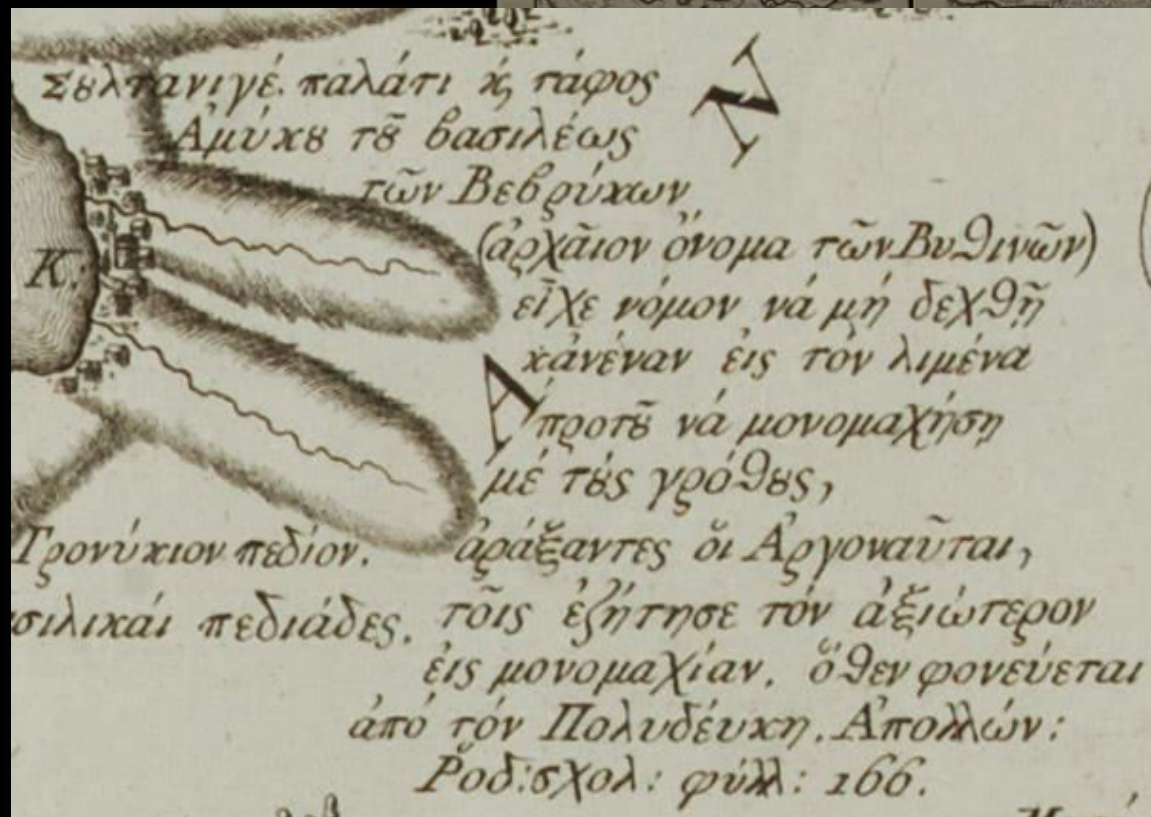 Σȣλτανιγέ. παλάτι ϗ τάφος
Ἀμύκȣ τȣ͂ βασιλέως
τῶν Βεβρύκων
(ἀρχᾶιον ὄνομα τῶν Βυθινῶν)
εἶχε νόμον νά μή δεχθῇ
κἀνέναν ἐις τόν λιμένα
προτȣ͂ νά μονομαχήσῃ
μέ τȣ́ς γρόθȣς,
ἀράξαντες ὁι Ἀργοναῦται,
τοῖς ἐζήτησε τόν ἀξιώτερον
ἐις μονομαχίαν. ὅθεν φονεύεται
ἀπό τόν Πολυδέυκη. Ἀπολλών:
Ῥοδ: σχολ: φύλλ: 166.
Κ:
Γρονύκιον πεδίον.
σιλικάι πεδιάδες.
Ν
Α